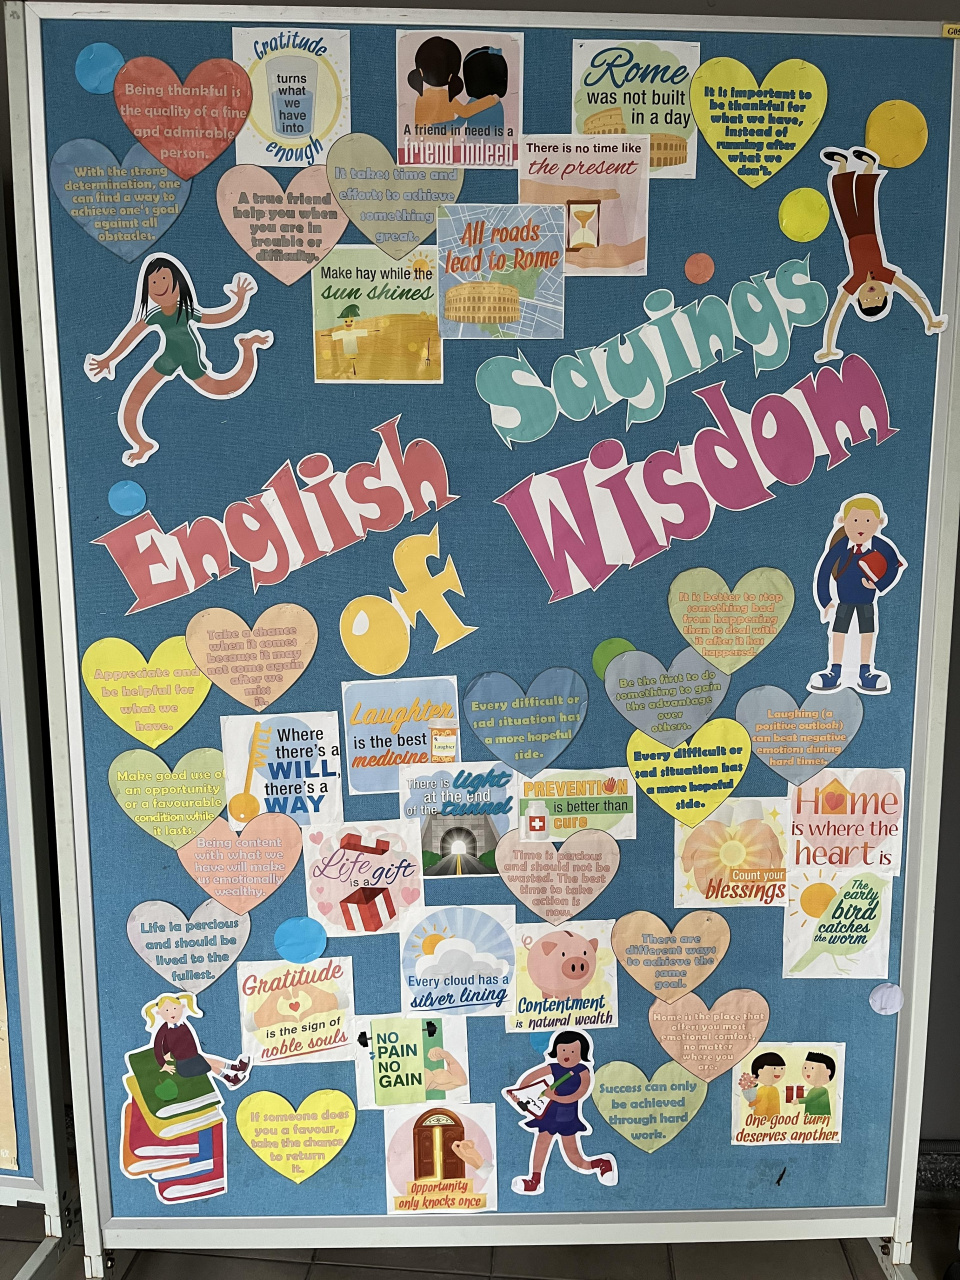 G05
Being thankful is
the quality of a fine
and admirable
person.
Gratitude
turns
what
we
have
into
enough
A friend in need is a
friend indeed
Rome
was not built
in a day
It is important to
be thankful for
what we have,
instead of
running after
what we
don't.
With the strong
determination, one
can find a way to
achieve one's goal
against all
obstacles.
A true friend
help you when
you are in
trouble or
difficulty.
It takes time and
efforts to achieve
something
great.
There is no time like
the present
Make hay while the
sun shines
All roads
lead to Rome
English
Sayings
of
Wisdom
Appreciate and
be helpful for
what we
have.
Take a chance
when it comes
because it may
not come again
after we
miss
it.
It is better to stop
something bad
from happening
than to deal with
it after it has
happened.
Be the first to do
something to gain
the advantage
over
others.
Every difficult or
sad situation has
a more hopeful
side.
Laughing (a
positive outlook)
can beat negative
emotions during
hard times.
Laughter
is the best
medicine
Laughter
Where
there's a
WILL,
there's a
WAY
WILL
Make good use of
an opportunity
or a favourable
condition while
it lasts.
There is light
at the end
of the tunnel
PREVENTION
is better than
cure
Every difficult or
sad situation has
a more hopeful
side.
Home
is where the
heart is
Being content
with what we
have will make
us emotionally
wealthy.
Life
is a gift
Time is percious
and should not be
wasted. The best
time to take
action is
now.
Count your
blessings
The
early
bird
catches
the worm
Life ia percious
and should be
lived to the
fullest.
Every cloud has a
silver lining
Contentment
is natural wealth
There are
different ways
to achieve the
same
goal.
Gratitude
is the sign of
noble souls
NO
PAIN
NO
GAIN
Home is the place that
offers you most
emotional comfort,
no matter
where you
are.
If someone does
you a favour,
take the chance
to return
it.
Opportunity
only knocks once
Success can only
be achieved
through hard
work.
One good turn
deserves another